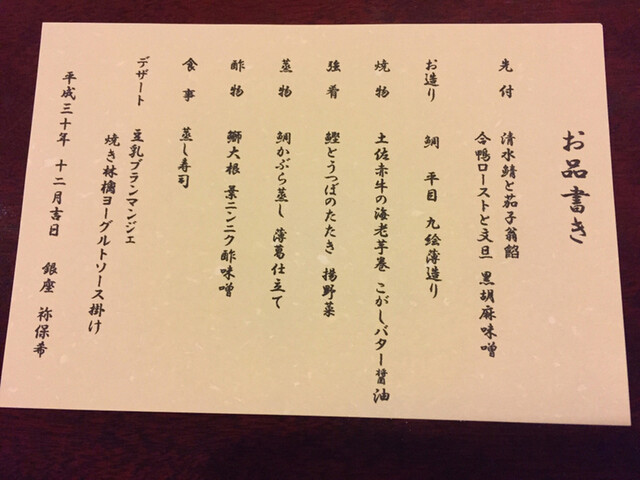 お品書き
先付 清水鯖と茄子翁餡
合鴨ローストと文旦 黒胡麻味噌
お造り 鯛 平目 九絵薄造り
焼物 土佐赤牛の海老芋巻 こがしバター醤油
強肴 鰹とうつぼのたたき 揚野菜
蒸物 鯛かぶら蒸し 薄葛仕立て
酢物 鰤大根 葉ニンニク酢味噌
食事 蒸し寿司
デザート 豆乳ブランマンジェ
焼き林檎ヨーグルトソース掛け
平成三十年 十二月吉日 銀座 祢保希